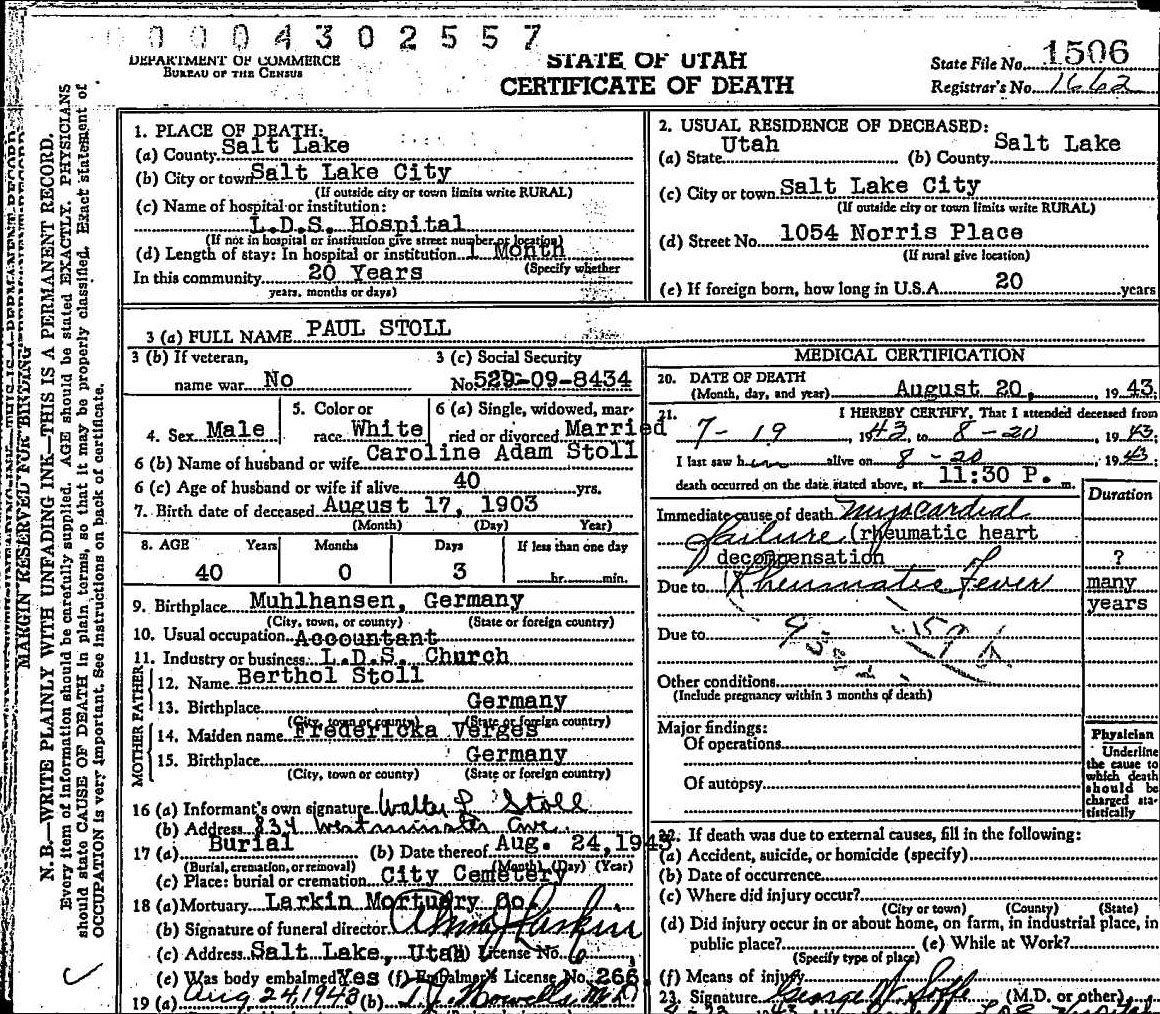 0004302557
DEPARTMENT OF COMMERCE
BUREAU OF THE CENSUS
STATE OF UTAH
CERTIFICATE OF DEATH
State File No. 1506
Registrar's No. 1662
MARGIN RESERVED FOR BINDING
N. B.—WRITE PLAINLY WITH UNFADING INK—THIS IS A PERMANENT RECORD.
Every item of information should be carefully supplied. AGE should be stated EXACTLY. PHYSICIANS
should state CAUSE OF DEATH in plain terms, so that it may be properly classified. Exact statement of
OCCUPATION is very important. See instructions on back of certificate.
1. PLACE OF DEATH:
(a) County Salt Lake
(b) City or town Salt Lake City
(If outside city or town limits write RURAL)
(c) Name of hospital or institution:
L.D.S. Hospital
(If not in hospital or institution give street number or location)
(d) Length of stay: In hospital or institution 1 Month
(Specify whether
In this community 20 Years
years, months or days)
2. USUAL RESIDENCE OF DECEASED:
(a) State Utah (b) County Salt Lake
(c) City or town Salt Lake City
(If outside city or town limits write RURAL)
(d) Street No. 1054 Norris Place
(If rural give location)
(e) If foreign born, how long in U.S.A. 20 years
3 (a) FULL NAME PAUL STOLL
3 (b) If veteran,
name war No
3 (c) Social Security
No. 529-09-8434
4. Sex Male
5. Color or
race White
6 (a) Single, widowed, mar-
ried or divorced Married
6 (b) Name of husband or wife Caroline Adam Stoll
6 (c) Age of husband or wife if alive 40 yrs.
7. Birth date of deceased August 17, 1903
(Month) (Day) Year)
8. AGE Years Months Days If less than one day
40 0 3 hr. min.
9. Birthplace Muhlhansen, Germany
(City, town, or county) (State or foreign country)
10. Usual occupation Accountant
11. Industry or business L.D.S. Church
FATHER
12. Name Berthol Stoll
13. Birthplace Germany
(City, town or county) (State or foreign country)
MOTHER
14. Maiden name Fredericka Verges
15. Birthplace Germany
(City, town or county) (State or foreign country)
16 (a) Informant's own signature Walter L Stoll
(b) Address 834 Westminster Ave
17 (a) Burial (b) Date thereof Aug. 24, 1943
(Burial, cremation, or removal) (Month) (Day) (Year)
(c) Place: burial or cremation City Cemetery
18 (a) Mortuary Larkin Mortuary Co.
(b) Signature of funeral director Larkin
(c) Address Salt Lake, Utah (d) License No. 6
(e) Was body embalmed Yes (f) Embalmer's License No. 266
19 (a) Aug 24, 1943 (b)
MEDICAL CERTIFICATION
20. DATE OF DEATH
(Month, day, and year) August 20, 1943.
21. I HEREBY CERTIFY, That I attended deceased from
7-19, 1943, to 8-20, 1943;
I last saw him alive on 8-20, 1943;
death occurred on the date stated above, at 11:30 P. m.
Duration
Immediate cause of death myocardial
failure (rheumatic heart
decompensation ?
Due to Rheumatic Fever many
years
Due to
Other conditions
(Include pregnancy within 3 months of death)
Major findings:
Of operations
Of autopsy
Physician
Underline
the cause to
which death
should be
charged sta-
tistically
22. If death was due to external causes, fill in the following:
(a) Accident, suicide, or homicide (specify)
(b) Date of occurrence
(c) Where did injury occur?
(City or town) (County) (State)
(d) Did injury occur in or about home, on farm, in industrial place, in
public place? (e) While at Work?
(Specify type of place)
(f) Means of injury
23. Signature George N. Soffe (M.D. or other)